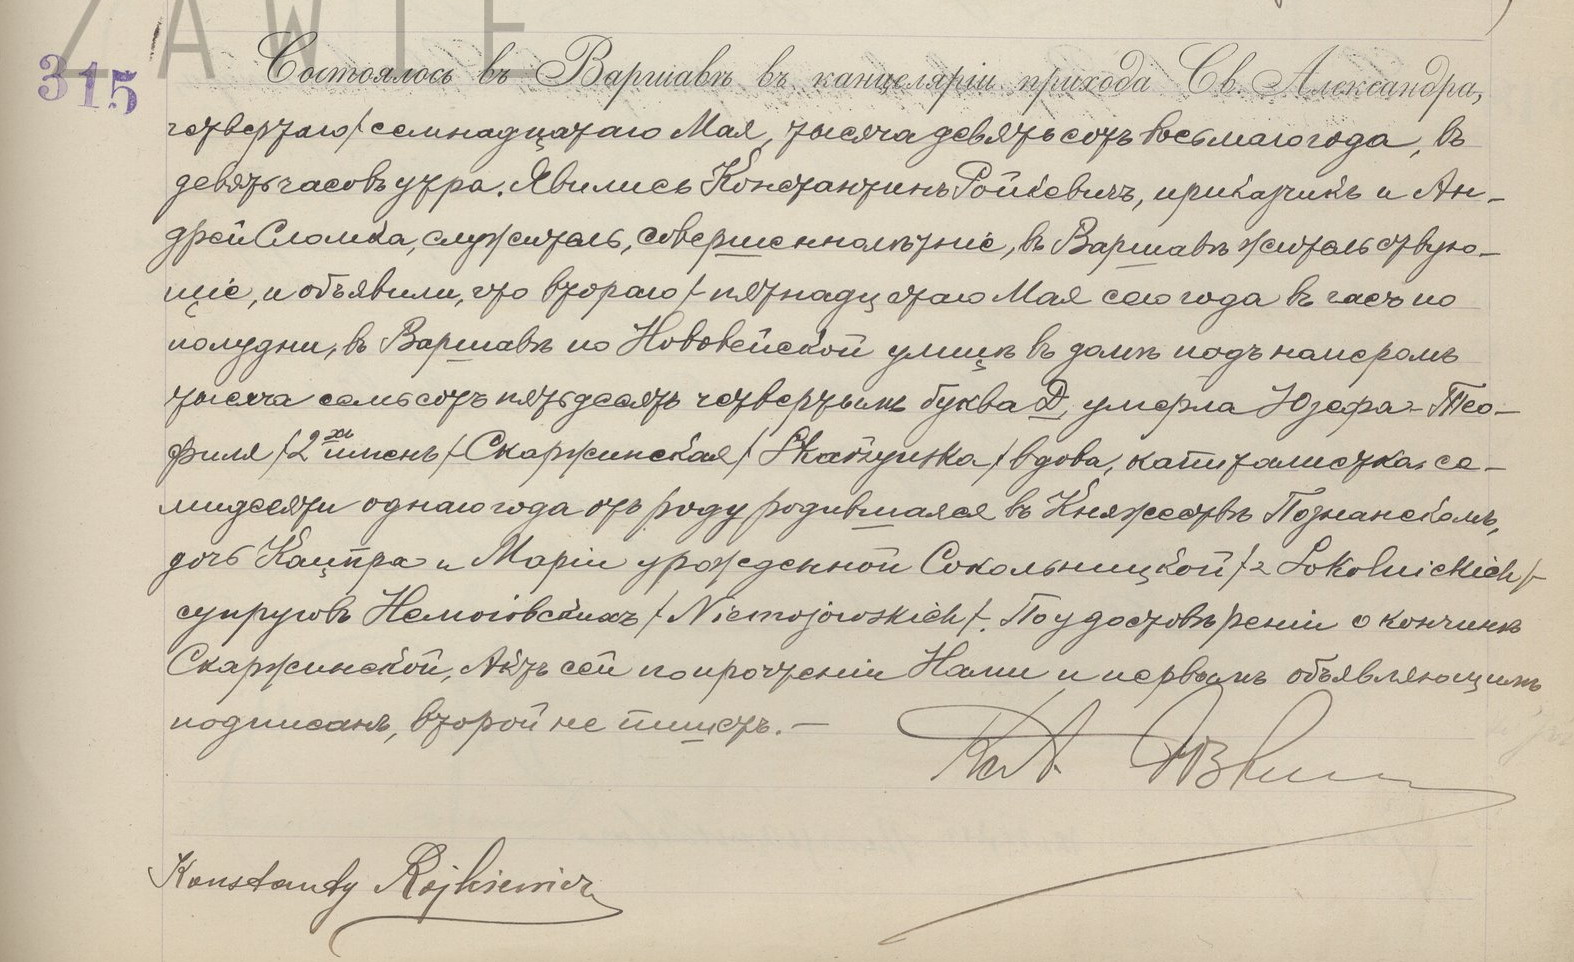 ZAWIE
315
Состоялось въ Варшавѣ въ канцеляріи прихода Св. Александра,
четвертаго/семнадцатаго Мая, тысяча девятьсотъ восьмаго года, въ
девять часовъ утра. Явились Константинъ Ройкевичъ, прикащикъ и Ан-
дрей Сломка, служитель, совершеннолѣтніе, въ Варшавѣ жительствую-
щіе, и объявили, что втораго/пятнадцатаго Мая сего года въ часъ по
полудни, въ Варшавѣ по Нововейской улицѣ въ домѣ подъ номеромъ
тысяча семьсотъ пятьдесятъ четвертымъ буква Д, умерла Юзефа-Тео-
филя /2хъ именъ/ Скаржинская /Skarżyńska/ вдова, капиталистка, се-
мидесяти одного года отъ роду родившаяся въ Княжествѣ Познанскомъ,
дочь Каспра и Маріи урожденной Сокольницкой /z Sokolnickich/
супруговъ Немоіовскихъ /Niemojowskich/. По удостовѣреніи о кончинѣ
Скаржинской, Актъ сей по прочтеніи Нами и первымъ объявляющимъ
подписанъ, второй не пишетъ.—
Konstanty Rojkiewicz